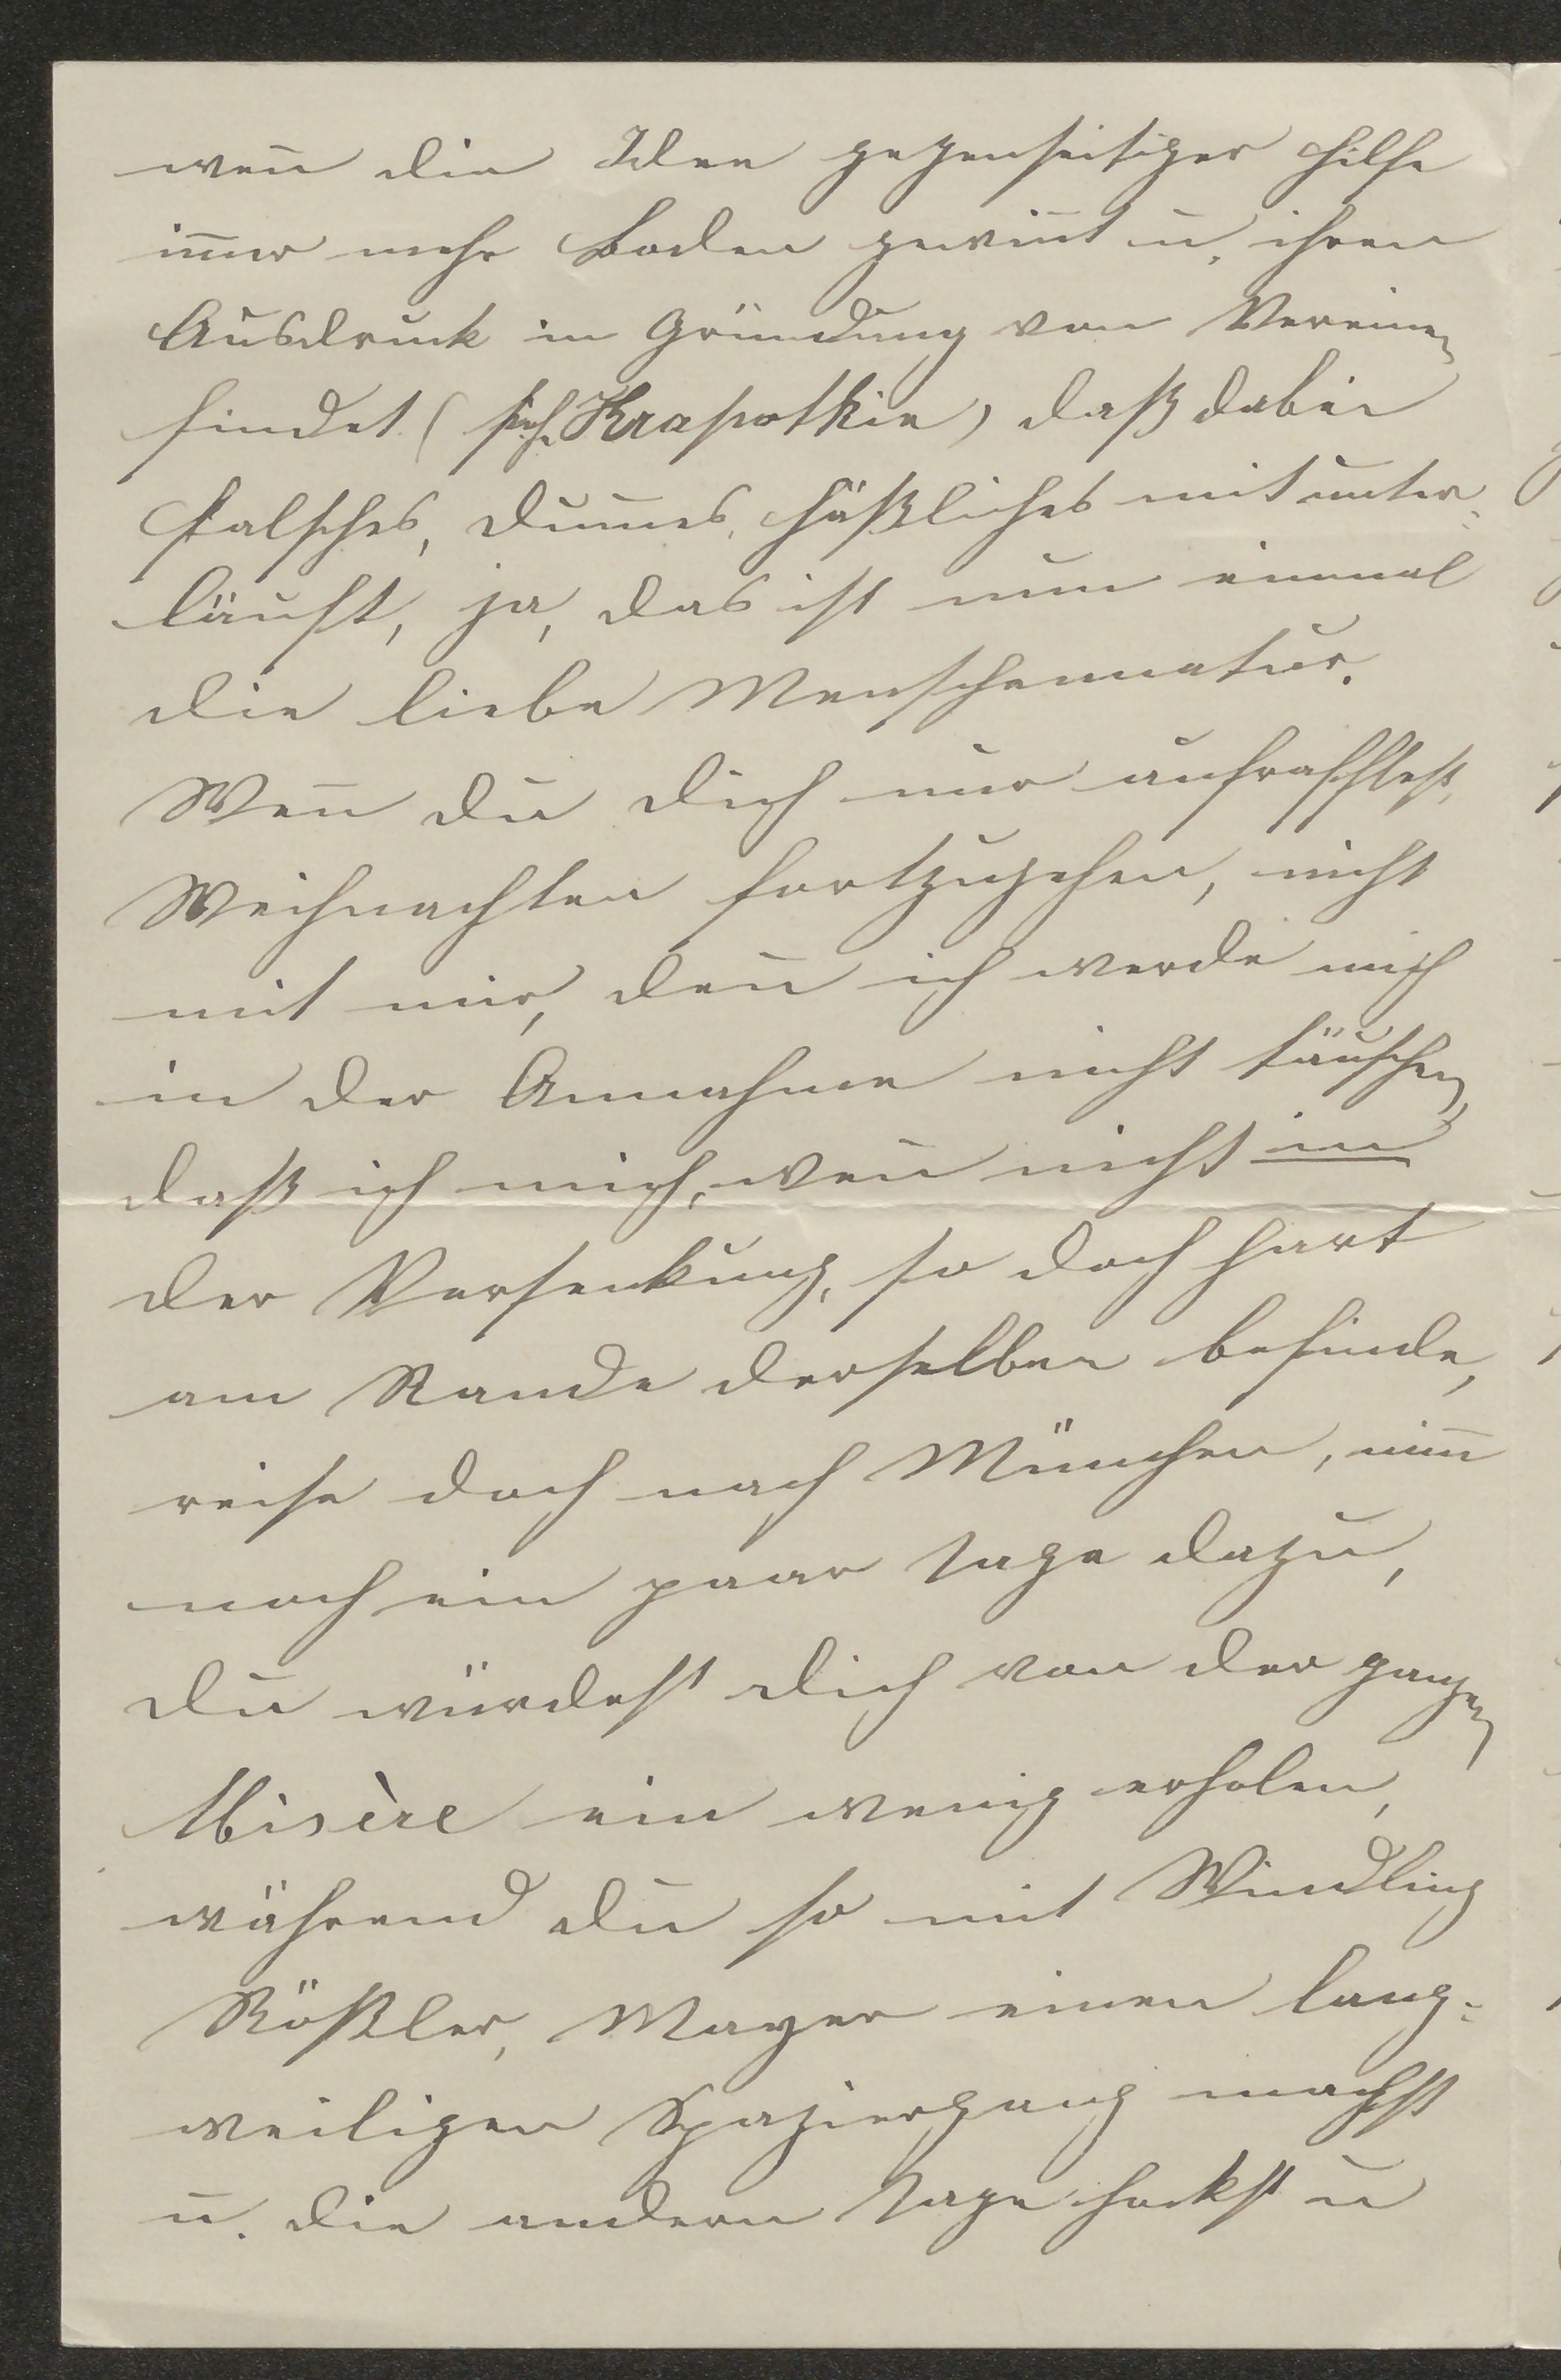 wen̄ die Idee gegenseitiger Hilfe
im̄er mehr Boden gewin̄t u. ihren
Ausdruck in Gründung von Vereinen
findet (sieh Krapotkin) daß dabei
Falsches, Dum̄es, Häßliches mitunter=
läuft, ja, das ist nun einmal
die liebe Menschennatur.
Wen̄ du dich nur aufrafftest,
Weihnachten fortzugehen, nicht
mit mir, den̄ ich werde mich
in der Annahme nicht täuschen,
daß ich mich, wen̄ nicht in
der Versenkung, so doch hart
am Rande derselben befinde,
reise doch nach München, nim̄
noch ein paar Tage dazu,
du würdest dich von der ganzen
Misère ein wenig erholen,
während du so mit Windling
Rößler, Mayer einen lang=
weiligen Spaziergang machst
u. die andern Tage hockst u